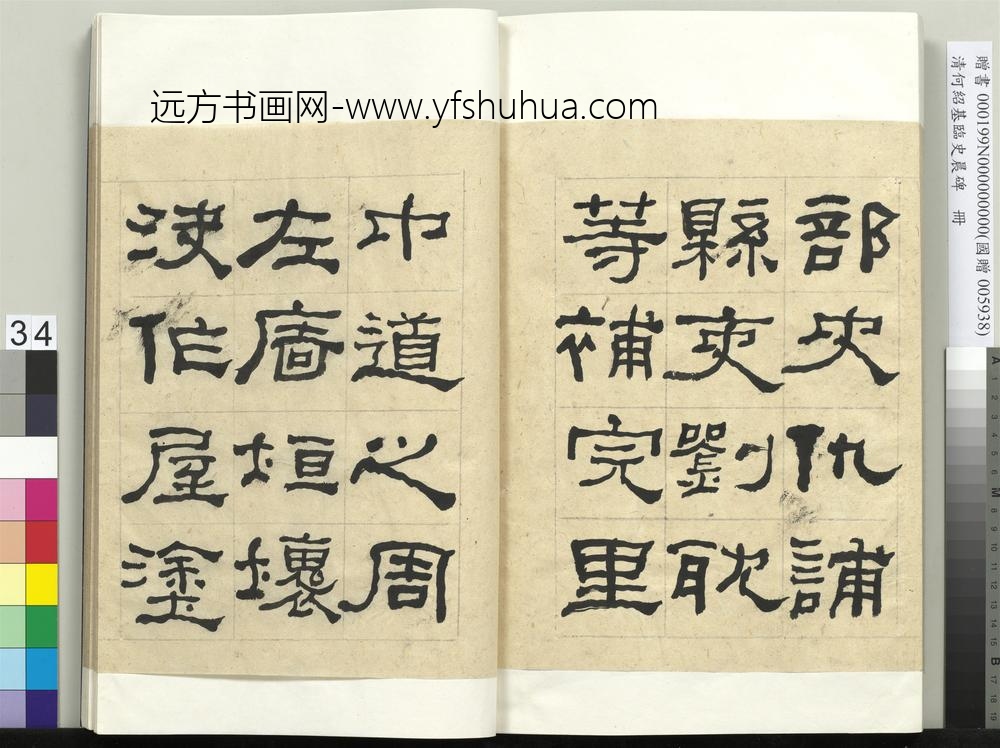 远方书画网-www.yfshuhua.com
贈書 000199N000000000(國贈 005938)
清何紹基臨史晨碑 冊
部史仇誧
縣吏劉耽
等補完里
中道之周
左廧垣壞
決作屋塗
34
A 1 2 3 4 5 6 M 8 9 10 11 12 13 14 15 B 17 18 19